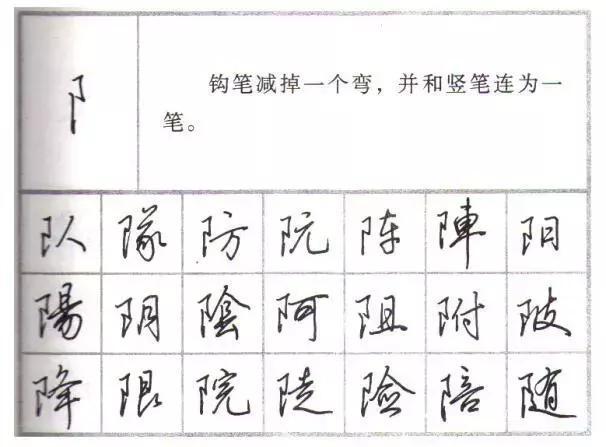 阝
钩笔减掉一个弯，并和竖笔连为一
笔。
队 隊 防 阮 阵 陣 阳
陽 阴 陰 阿 阻 附 陂
降 限 院 陡 險 陪 随